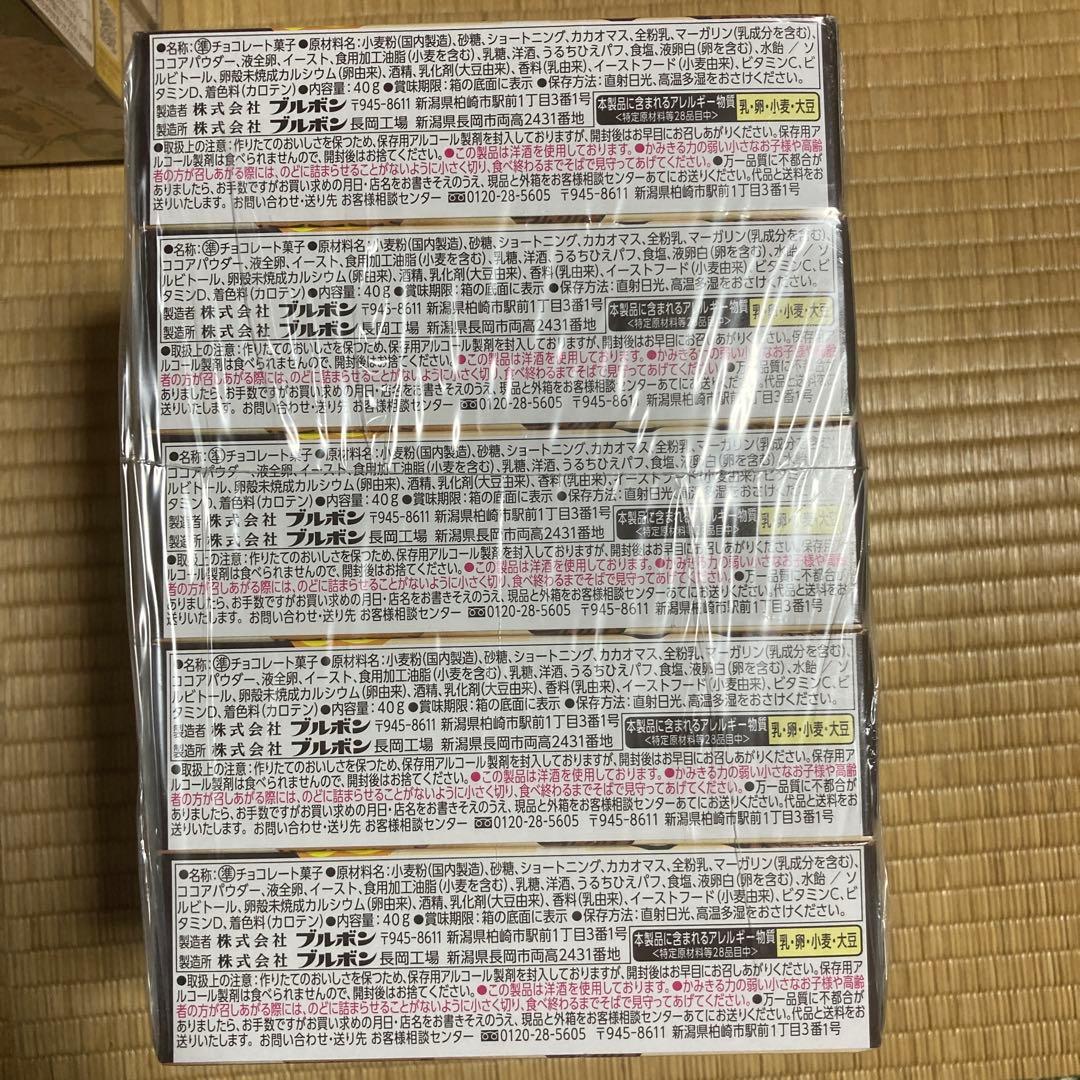 ●名称:㊣チョコレート菓子●原材料名:小麦粉(国内製造)、砂糖、ショートニング、カカオマス、全粉乳、マーガリン(乳成分を含む)、
ココアパウダー、液全卵、イースト、食用加工油脂(小麦を含む)、乳糖、洋酒、うるちひえパフ、食塩、液卵白(卵を含む)、水飴／ソ
ルビトール、卵殻未焼成カルシウム(卵由来)、酒精、乳化剤(大豆由来)、香料(乳由来)、イーストフード(小麦由来)、ビタミンC、ビ
タミンD、着色料(カロテン)●内容量:40g●賞味期限:箱の底面に表示 ●保存方法:直射日光、高温多湿をおさけください。
製造者 株式会社 ブルボン 〒945-8611 新潟県柏崎市駅前1丁目3番1号
製造所 株式会社 ブルボン 長岡工場 新潟県長岡市両高2431番地
本製品に含まれるアレルギー物質
<特定原材料等28品目中>
乳・卵・小麦・大豆
●取扱上の注意:作りたてのおいしさを保つため、保存用アルコール製剤を封入しておりますが、開封後はお早目にお召しあがりください。保存用ア
ルコール製剤は食べられませんので、開封後はお捨てください。●この製品は洋酒を使用しております。●かみきる力の弱い小さなお子様や高齢
者の方が召しあがる際には、のどに詰まらせることがないように小さく切り、食べ終わるまでそばで見守ってあげてください。●万一品質に不都合が
ありましたら、お手数ですがお買い求めの月日・店名をお書きそえのうえ、現品と外箱をお客様相談センターあてにお送りください。代品と送料をお
送りいたします。お問い合わせ・送り先 お客様相談センター 0120-28-5605 〒945-8611 新潟県柏崎市駅前1丁目3番1号
●名称:準チョコレート菓子●原材料名:小麦粉(国内製造)、砂糖、ショートニング、カカオマス、全粉乳、マーガリン(乳成分を含む)、
ココアパウダー、液全卵、イースト、食用加工油脂(小麦を含む)、乳糖、洋酒、うるちひえパフ、食塩、液卵白(卵を含む)、水飴／ソ
ルビトール、卵殻未焼成カルシウム(卵由来)、酒精、乳化剤(大豆由来)、香料(乳由来)、イーストフード(小麦由来)、ビタミンC、ビ
タミンD、着色料(カロテン)●内容量:40g●賞味期限:箱の底面に表示 ●保存方法:直射日光、高温多湿をおさけください。
製造者 株式会社 ブルボン 〒945-8611 新潟県柏崎市駅前1丁目3番1号
製造所 株式会社 ブルボン 長岡工場 新潟県長岡市両高2431番地
本製品に含まれるアレルギー物質
<特定原材料等28品目中>
乳・卵・小麦・大豆
●取扱上の注意:作りたてのおいしさを保つため、保存用アルコール製剤を封入しておりますが、開封後はお早目にお召しあがりください。保存用ア
ルコール製剤は食べられませんので、開封後はお捨てください。●この製品は洋酒を使用しております。●かみきる力の弱い小さなお子様や高齢
者の方が召しあがる際には、のどに詰まらせることがないように小さく切り、食べ終わるまでそばで見守ってあげてください。●万一品質に不都合が
ありましたら、お手数ですがお買い求めの月日・店名をお書きそえのうえ、現品と外箱をお客様相談センターあてにお送りください。代品と送料をお
送りいたします。お問い合わせ・送り先 お客様相談センター 0120-28-5605 〒945-8611 新潟県柏崎市駅前1丁目3番1号
●名称:準チョコレート菓子●原材料名:小麦粉(国内製造)、砂糖、ショートニング、カカオマス、全粉乳、マーガリン(乳成分を含む)、
ココアパウダー、液全卵、イースト、食用加工油脂(小麦を含む)、乳糖、洋酒、うるちひえパフ、食塩、液卵白(卵を含む)、水飴／ソ
ルビトール、卵殻未焼成カルシウム(卵由来)、酒精、乳化剤(大豆由来)、香料(乳由来)、イーストフード(小麦由来)、ビタミンC、ビ
タミンD、着色料(カロテン)●内容量:40g●賞味期限:箱の底面に表示 ●保存方法:直射日光、高温多湿をおさけください。
製造者 株式会社 ブルボン 〒945-8611 新潟県柏崎市駅前1丁目3番1号
製造所 株式会社 ブルボン 長岡工場 新潟県長岡市両高2431番地
本製品に含まれるアレルギー物質
<特定原材料等28品目中>
乳・卵・小麦・大豆
●取扱上の注意:作りたてのおいしさを保つため、保存用アルコール製剤を封入しておりますが、開封後はお早目にお召しあがりください。保存用ア
ルコール製剤は食べられませんので、開封後はお捨てください。●この製品は洋酒を使用しております。●かみきる力の弱い小さなお子様や高齢
者の方が召しあがる際には、のどに詰まらせることがないように小さく切り、食べ終わるまでそばで見守ってあげてください。●万一品質に不都合が
ありましたら、お手数ですがお買い求めの月日・店名をお書きそえのうえ、現品と外箱をお客様相談センターあてにお送りください。代品と送料をお
送りいたします。お問い合わせ・送り先 お客様相談センター 0120-28-5605 〒945-8611 新潟県柏崎市駅前1丁目3番1号
●名称:準チョコレート菓子●原材料名:小麦粉(国内製造)、砂糖、ショートニング、カカオマス、全粉乳、マーガリン(乳成分を含む)、
ココアパウダー、液全卵、イースト、食用加工油脂(小麦を含む)、乳糖、洋酒、うるちひえパフ、食塩、液卵白(卵を含む)、水飴／ソ
ルビトール、卵殻未焼成カルシウム(卵由来)、酒精、乳化剤(大豆由来)、香料(乳由来)、イーストフード(小麦由来)、ビタミンC、ビ
タミンD、着色料(カロテン)●内容量:40g●賞味期限:箱の底面に表示 ●保存方法:直射日光、高温多湿をおさけください。
製造者 株式会社 ブルボン 〒945-8611 新潟県柏崎市駅前1丁目3番1号
製造所 株式会社 ブルボン 長岡工場 新潟県長岡市両高2431番地
本製品に含まれるアレルギー物質
<特定原材料等28品目中>
乳・卵・小麦・大豆
●取扱上の注意:作りたてのおいしさを保つため、保存用アルコール製剤を封入しておりますが、開封後はお早目にお召しあがりください。保存用ア
ルコール製剤は食べられませんので、開封後はお捨てください。●この製品は洋酒を使用しております。●かみきる力の弱い小さなお子様や高齢
者の方が召しあがる際には、のどに詰まらせることがないように小さく切り、食べ終わるまでそばで見守ってあげてください。●万一品質に不都合が
ありましたら、お手数ですがお買い求めの月日・店名をお書きそえのうえ、現品と外箱をお客様相談センターあてにお送りください。代品と送料をお
送りいたします。お問い合わせ・送り先 お客様相談センター 0120-28-5605 〒945-8611 新潟県柏崎市駅前1丁目3番1号
●名称:準チョコレート菓子●原材料名:小麦粉(国内製造)、砂糖、ショートニング、カカオマス、全粉乳、マーガリン(乳成分を含む)、
ココアパウダー、液全卵、イースト、食用加工油脂(小麦を含む)、乳糖、洋酒、うるちひえパフ、食塩、液卵白(卵を含む)、水飴／ソ
ルビトール、卵殻未焼成カルシウム(卵由来)、酒精、乳化剤(大豆由来)、香料(乳由来)、イーストフード(小麦由来)、ビタミンC、ビ
タミンD、着色料(カロテン)●内容量:40g●賞味期限:箱の底面に表示 ●保存方法:直射日光、高温多湿をおさけください。
製造者 株式会社 ブルボン 〒945-8611 新潟県柏崎市駅前1丁目3番1号
製造所 株式会社 ブルボン 長岡工場 新潟県長岡市両高2431番地
本製品に含まれるアレルギー物質
<特定原材料等28品目中>
乳・卵・小麦・大豆
●取扱上の注意:作りたてのおいしさを保つため、保存用アルコール製剤を封入しておりますが、開封後はお早目にお召しあがりください。保存用ア
ルコール製剤は食べられませんので、開封後はお捨てください。●この製品は洋酒を使用しております。●かみきる力の弱い小さなお子様や高齢
者の方が召しあがる際には、のどに詰まらせることがないように小さく切り、食べ終わるまでそばで見守ってあげてください。●万一品質に不都合が
ありましたら、お手数ですがお買い求めの月日・店名をお書きそえのうえ、現品と外箱をお客様相談センターあてにお送りください。代品と送料をお
送りいたします。お問い合わせ・送り先 お客様相談センター 0120-28-5605 〒945-8611 新潟県柏崎市駅前1丁目3番1号